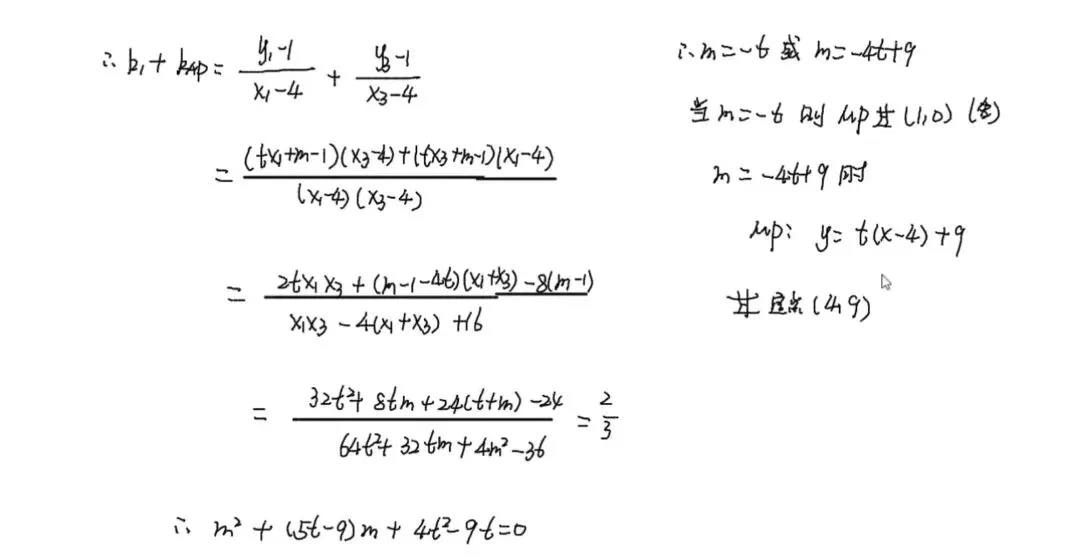 ∴ k₁ + k_AP = (y₁-1)/(x₁-4) + (y₃-1)/(x₃-4)
= ((tx₁+m-1)(x₃-4)+(tx₃+m-1)(x₁-4))/((x₁-4)(x₃-4))
= (2tx₁x₃ + (m-1-4t)(x₁+x₃) - 8(m-1))/(x₁x₃ - 4(x₁+x₃) + 16)
= (32t²+8tm+24(t+m)-24)/(64t²+32tm+4m²-36) = 2/3
∴ m² + (5t-9)m + 4t²-9t=0
∴ m=-t 或 m=-4t+9
当m=-t 则 MP过(1,0) (舍)
m=-4t+9 时
MP: y= t(x-4)+9
过定点(4,9)